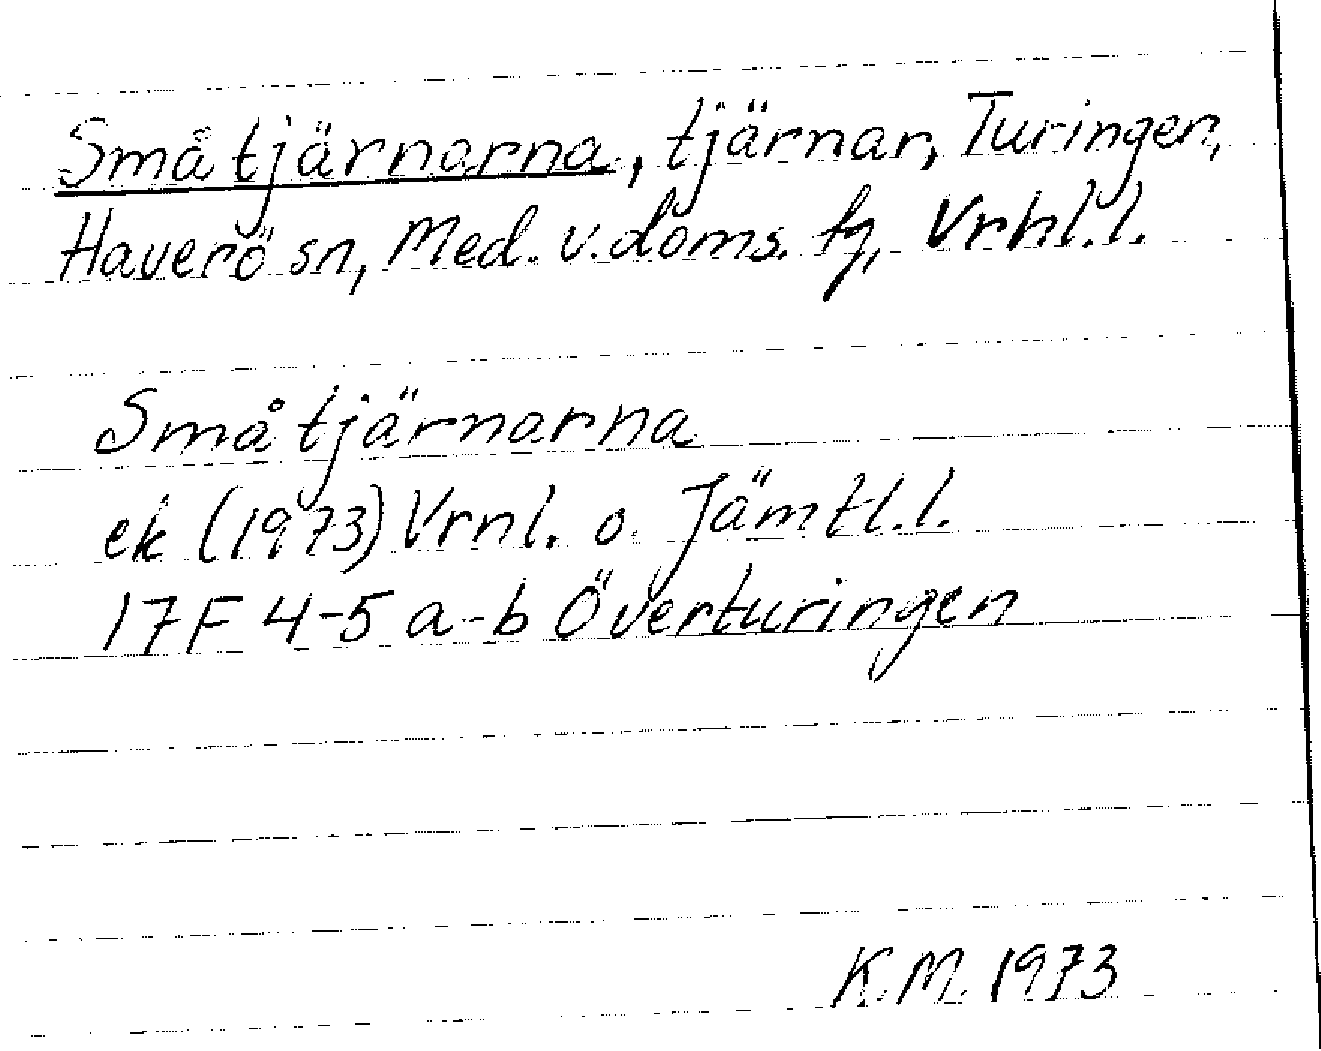 Småtjärnarna, tjärnar, Turingen,
Haverö sn, Med. v. doms. tg, Vrnl.l.
Småtjärnarna
ek (1973) Vrnl. o. Jämtl.l.
17F 4-5 a-b Överturingen
K.M. 1973